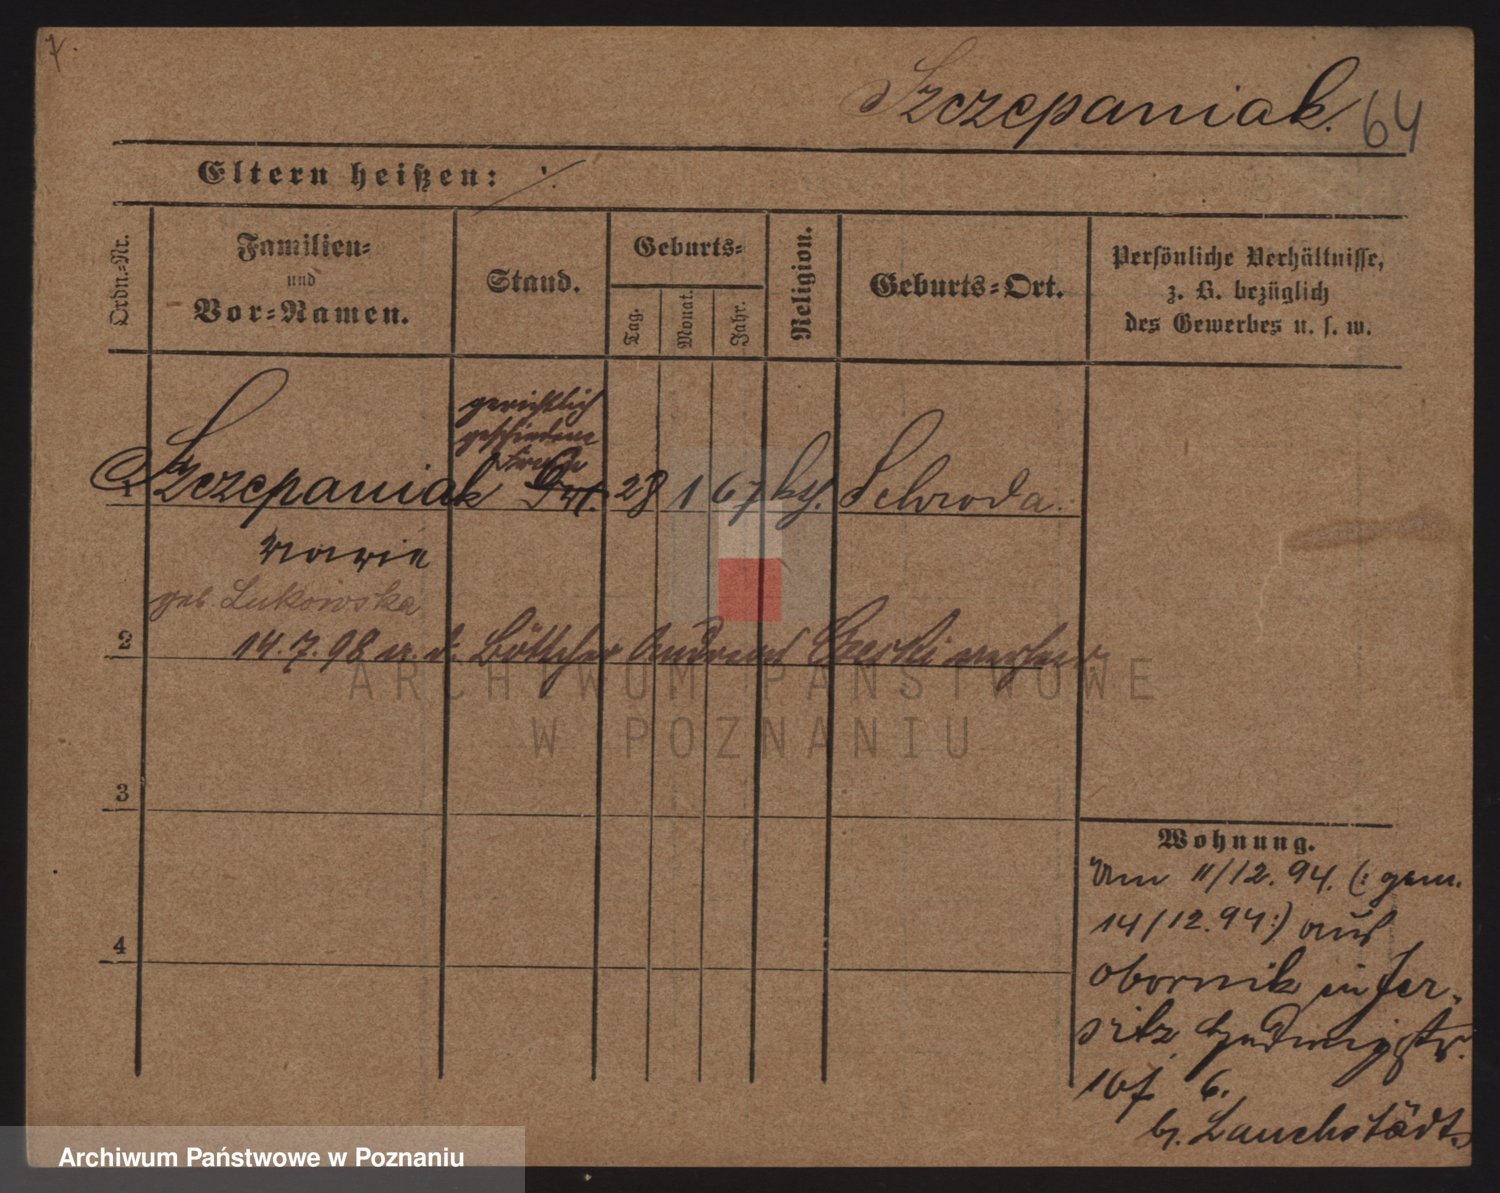 7.
Szczepaniak. 64
Eltern heißen: ⁒
Ordn.-Nr.
Familien-
und
Vor-Namen.
Stand.
Geburts-
Tag.
Monat.
Jahr.
Religion.
Geburts-Ort.
Persönliche Verhältnisse,
z. B. bezüglich
des Gewerbes u. s. w.
gerichtlich
geschiedene
Frau
1 Szczepaniak 28 1 67 kth. Schroda.
Marie
geb. Lukowska
2 14.7.98 a. d. Böttcher Andreas
3
4
Wohnung.
Am 11/12. 94. (: gem.
14/12. 94 :) aus
Obornik in Jer-
sitz Hedwigstr.
6.
b. Lauchstädt.
ARCHIWUM PAŃSTWOWE
W POZNANIU
Archiwum Państwowe w Poznaniu